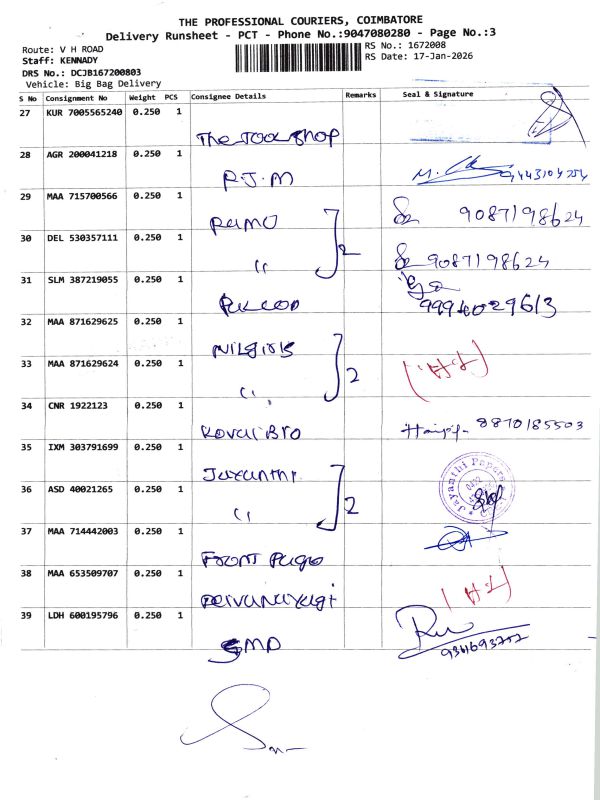 THE PROFESSIONAL COURIERS, COIMBATORE
Delivery Runsheet - PCT - Phone No.:9047080280 - Page No.:3
Route: V H ROAD
RS No.: 1672008
Staff: KENNADY
RS Date: 17-Jan-2026
DRS No.: DCJB167200803
Vehicle: Big Bag Delivery
S No Consignment No Weight PCS Consignee Details Remarks Seal & Signature
27 KUR 7005565240 0.250 1
The Tool Shop
28 AGR 200041218 0.250 1
P.J.M
29 MAA 715700566 0.250 1
9087198624
30 DEL 530357111 0.250 1
" 2 9087198624
31 SLM 387219055 0.250 1
9994029613
32 MAA 871629625 0.250 1
Nilgiris
33 MAA 871629624 0.250 1
" 2
34 CNR 1922123 0.250 1
Kovai Bro 8870185503
35 IXM 303791699 0.250 1
Jayanthi
Jayanthi Papers
36 ASD 40021265 0.250 1
" 2
37 MAA 714442003 0.250 1
Front Page
38 MAA 653509707 0.250 1
Deivanayagi
39 LDH 600195796 0.250 1
SMD